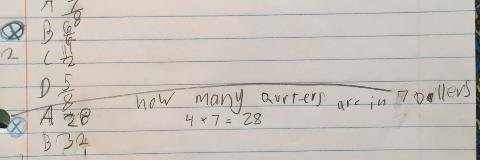 A 7/8
B
C
D 5/8
2
A 28 how many qurters are in 7 Dollers
4 x 7 = 28
B 32